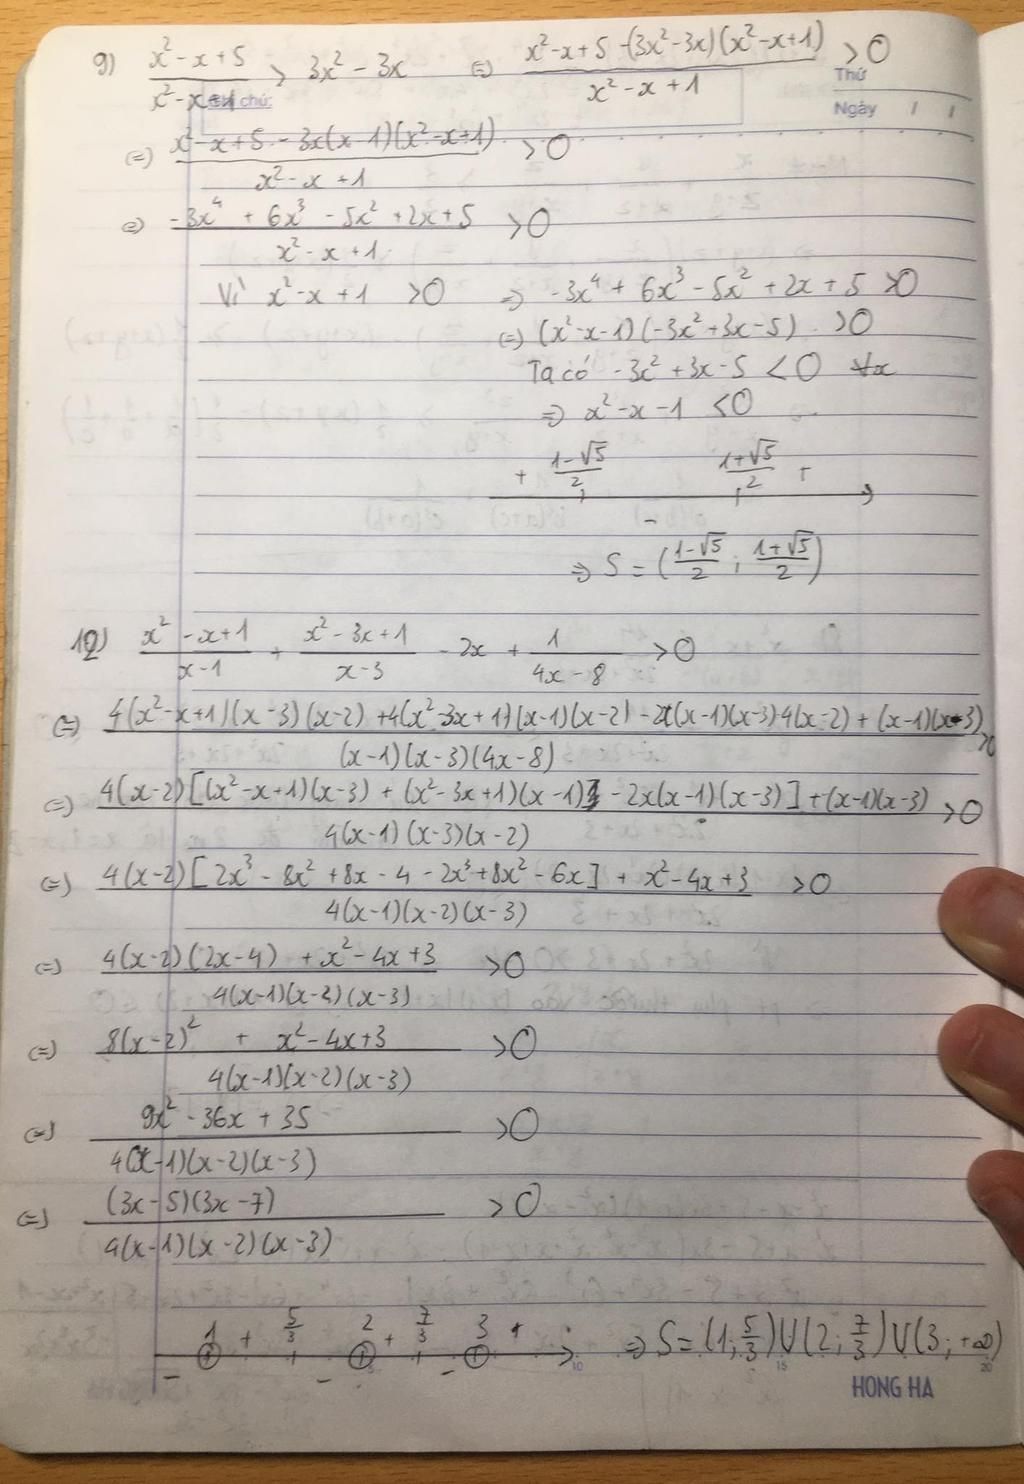 9) \frac{x² - x + 5}{x² - x + 1} > 3x² - 3x (=) \frac{x² - x + 5 - (3x² - 3x)(x² - x + 1)}{x² - x + 1} > 0
Thứ
Ngày / /
chú:
(=) \frac{x² - x + 5 - 3x(x - 1)(x² - x + 1)}{x² - x + 1} > 0
(=) \frac{-3x⁴ + 6x³ - 5x² + 2x + 5}{x² - x + 1} > 0
Vì x² - x + 1 > 0 => -3x⁴ + 6x³ - 5x² + 2x + 5 > 0
(=) (x² - x - 1)(-3x² + 3x - 5) > 0
Ta có -3x² + 3x - 5 < 0 ∀x
=> x² - x - 1 < 0
+ \frac{1-√5}{2} - \frac{1+√5}{2} +
=> S = (\frac{1-√5}{2} ; \frac{1+√5}{2})
10) \frac{x² - x + 1}{x - 1} + \frac{x² - 3x + 1}{x - 3} - 2x + \frac{1}{4x - 8} > 0
(=) \frac{4(x² - x + 1)(x - 3)(x - 2) + 4(x² - 3x + 1)(x - 1)(x - 2) - 2x(x - 1)(x - 3)4(x - 2) + (x - 1)(x - 3)}{(x - 1)(x - 3)(4x - 8)} > 0
(=) \frac{4(x - 2)[(x² - x + 1)(x - 3) + (x² - 3x + 1)(x - 1) - 2x(x - 1)(x - 3)] + (x - 1)(x - 3)}{4(x - 1)(x - 3)(x - 2)} > 0
(=) \frac{4(x - 2)[2x³ - 8x² + 8x - 4 - 2x³ + 8x² - 6x] + x² - 4x + 3}{4(x - 1)(x - 2)(x - 3)} > 0
(=) \frac{4(x - 2)(2x - 4) + x² - 4x + 3}{4(x - 1)(x - 2)(x - 3)} > 0
(=) \frac{8(x - 2)² + x² - 4x + 3}{4(x - 1)(x - 2)(x - 3)} > 0
(=) \frac{9x² - 36x + 35}{4(x - 1)(x - 2)(x - 3)} > 0
(=) \frac{(3x - 5)(3x - 7)}{4(x - 1)(x - 2)(x - 3)} > 0
- 1 + \frac{5}{3} - 2 + \frac{7}{3} - 3 + => S = (1; \frac{5}{3}) U (2; \frac{7}{3}) U (3; +∞)
10 15 20
HONG HA